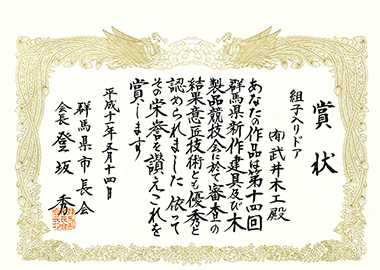 賞状
組子入りドア
㈲武井木工殿
あなたの作品は第十四回
群馬県新作建具及び木
製品競技会に於て審査の
結果意匠技術とも優秀と
認められました依って
その栄誉を讃えこれを
賞します
平成十一年五月十四日
群馬県市長会
会長 登坂 秀